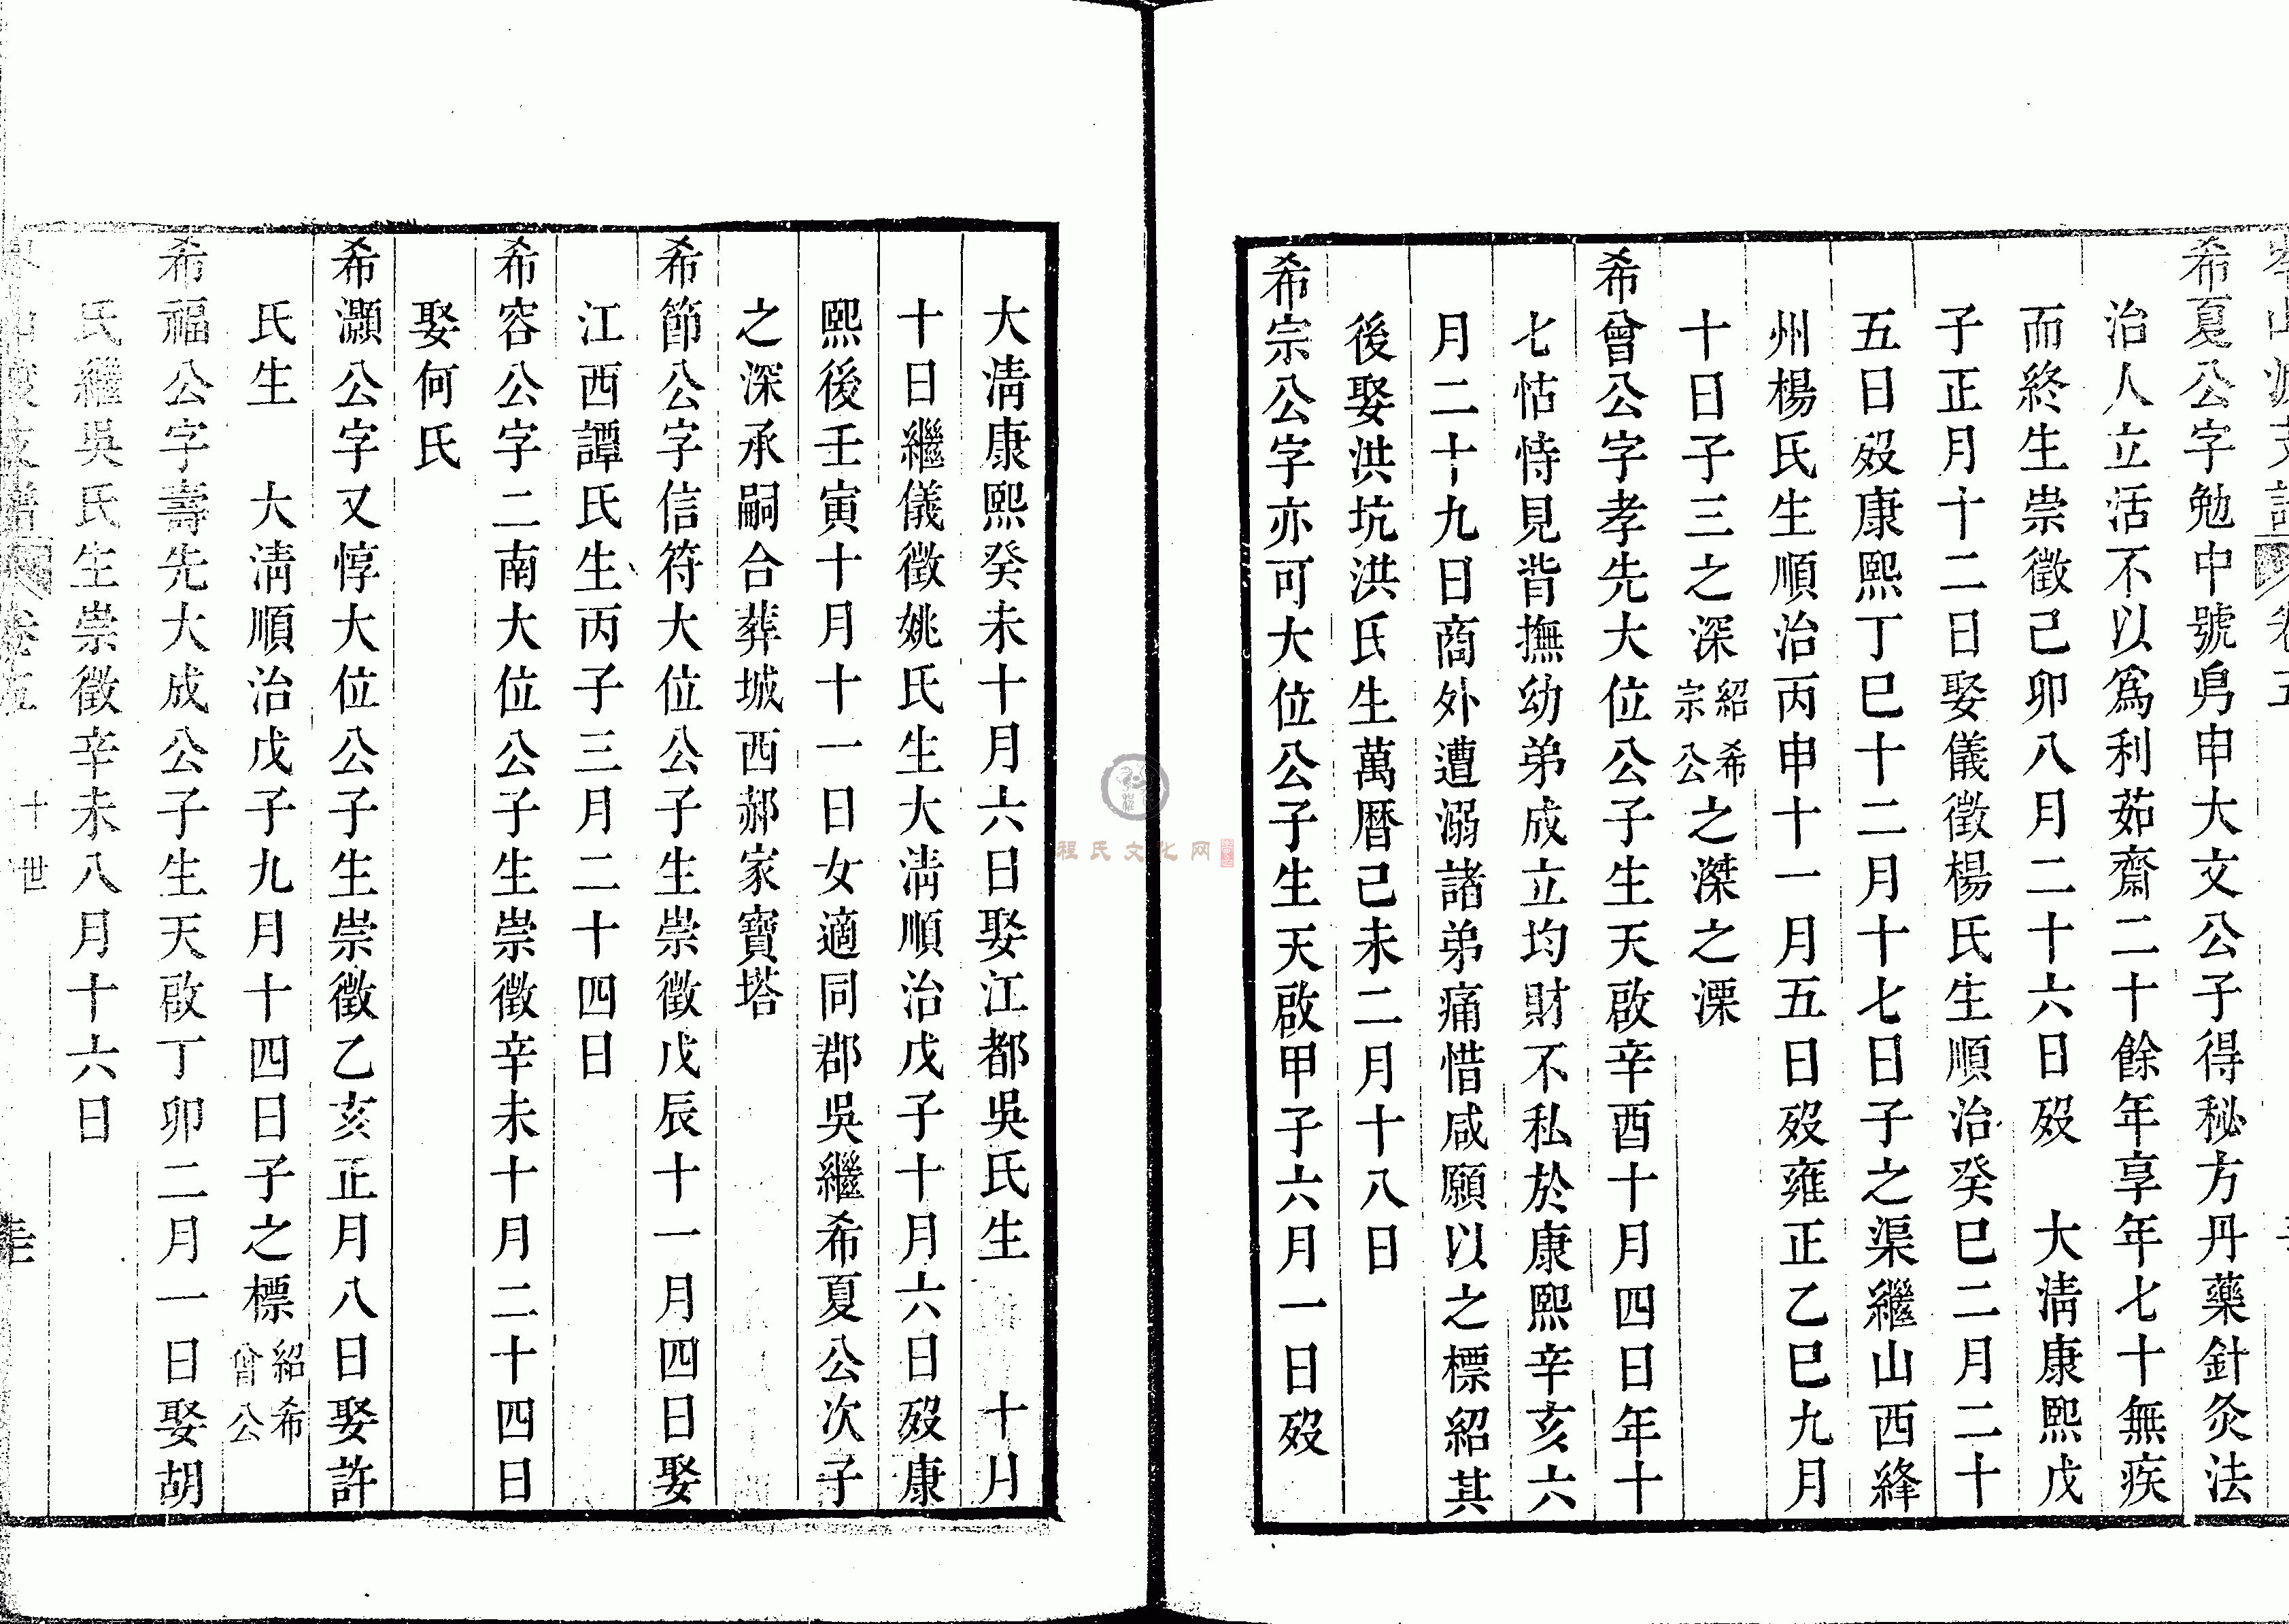 希夏公字勉中號勇申大文公子得秘方丹藥針灸法
治人立活不以爲利茹齋二十餘年享年七十無疾
而終生崇徵己卯八月二十六日歿　大淸康熙戊
子正月十二日娶儀徵楊氏生順治癸巳二月二十
五日歿康熙丁巳十二月十七日子之渠繼山西絳
州楊氏生順治丙申十一月五日歿雍正乙巳九月
十日子三之深紹希宗公之滐之溧
希曾公字孝先大位公子生天啟辛酉十月四日年十
七怙恃見背撫幼弟成立均財不私於康熙辛亥六
月二十九日商外遭溺諸弟痛惜咸願以之標紹其
後娶洪坑洪氏生萬曆己未二月十八日
希宗公字亦可大位公子生天啟甲子六月一日歿
大淸康熙癸未十月六日娶江都吳氏生　十月
十日繼儀徵姚氏生大淸順治戊子十月六日歿康
熙後壬寅十月十一日女適同郡吳繼希夏公次子
之深承嗣合葬城西郝家寶塔
希節公字信符大位公子生崇徵戊辰十一月四日娶
江西譚氏生丙子三月二十四日
希容公字二南大位公子生崇徵辛未十月二十四日
娶何氏
希灝公字又惇大位公子生崇徵乙亥正月八日娶許
氏生　大淸順治戊子九月十四日子之標紹希曾公
希福公字壽先大成公子生天啟丁卯二月一日娶胡
氏繼吳氏生崇徵辛未八月十六日
卷五　十世
程氏文化网